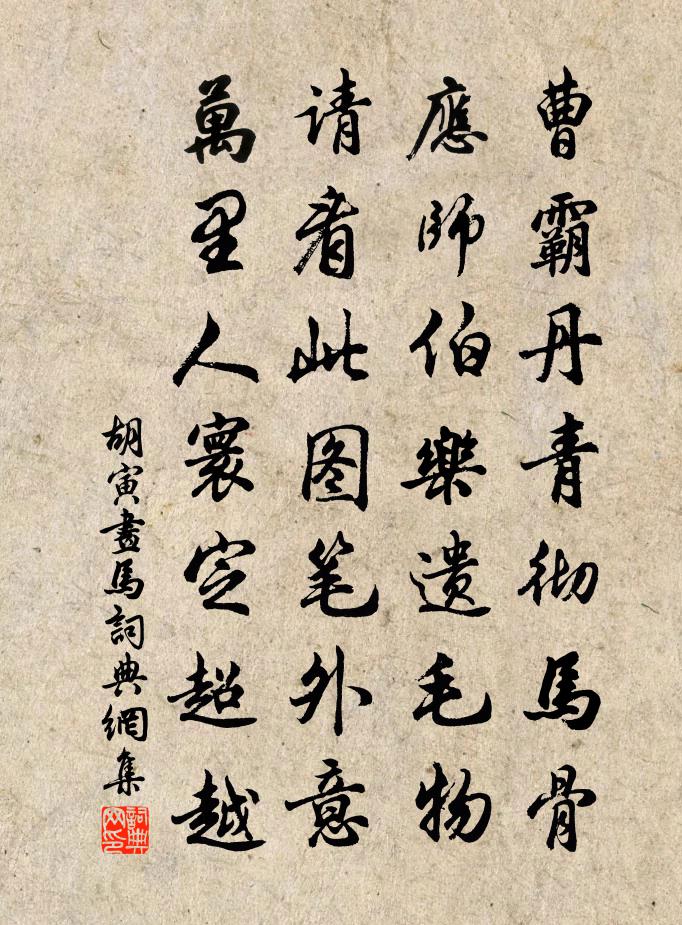 曹霸丹青彻馬骨
應師伯樂遗毛物
请看此图笔外意
萬里人寰空超越
胡寅畫馬詞典網集
詞典网印